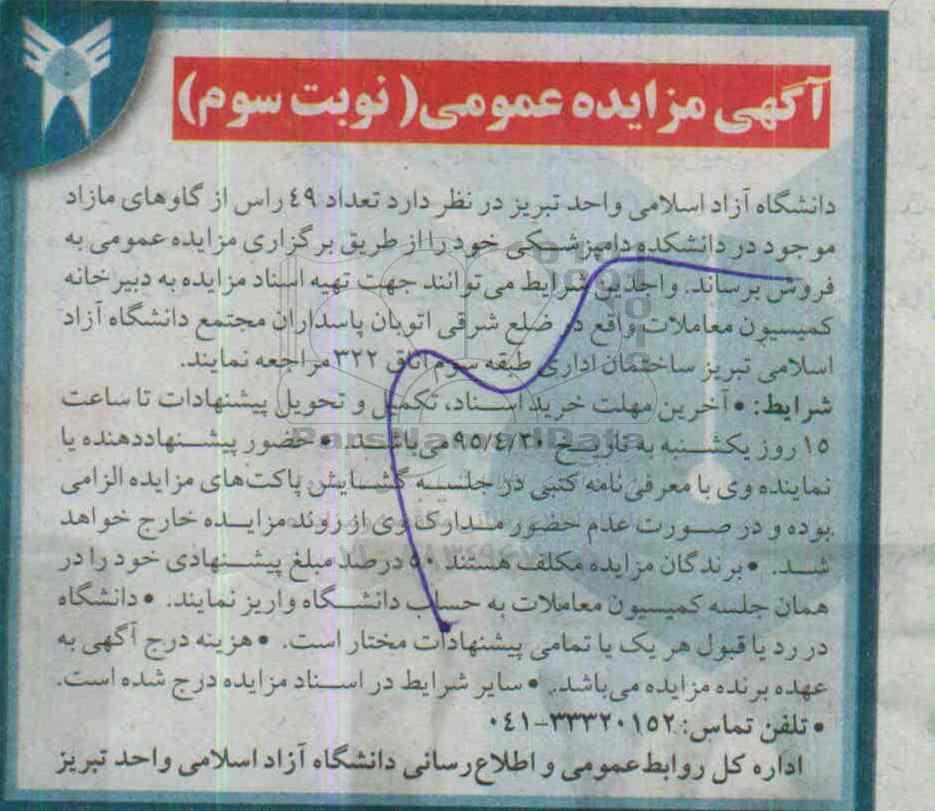 آگهی مزایده عمومی( نوبت سوم)
دانشگاه آزاد اسلامی واحد تبریز در نظر دارد تعداد ٤٩ راس از گاوهای مازاد
موجود در دانشکده دامپزشکی خود را از طریق برگزاری مزایده عمومی به
فروش برساند. واجدین شرایط می‌توانند جهت تهیه اسناد مزایده به دبیرخانه
کمیسیون معاملات واقع در ضلع شرقی اتوبان پاسداران مجتمع دانشگاه آزاد
اسلامی تبریز ساختمان اداری طبقه سوم اتاق ۳۲۲ مراجعه نمایند.
شرایط: • آخرین مهلت خرید اسناد، تکمیل و تحویل پیشنهادات تا ساعت
۱۵ روز یکشنبه به تاریخ ۹۵/٤/۲۰ می‌باشد. • حضور پیشنهاددهنده یا
نماینده وی با معرفی نامه کتبی در جلسه گشایش پاکت‌های مزایده الزامی
بوده و در صورت عدم حضور مدارک وی از روند مزایده خارج خواهد
شد. • برندگان مزایده مکلف هستند ۵۰ درصد مبلغ پیشنهادی خود را در
همان جلسه کمیسیون معاملات به حساب دانشگاه واریز نمایند. • دانشگاه
در رد یا قبول هر یک یا تمامی پیشنهادات مختار است. • هزینه درج آگهی به
عهده برنده مزایده می‌باشد. • سایر شرایط در اسناد مزایده درج شده است.
• تلفن تماس: ۳۳۳۲۰۱۵۲-۰٤۱
اداره کل روابط عمومی و اطلاع‌رسانی دانشگاه آزاد اسلامی واحد تبریز
ParsNamadData